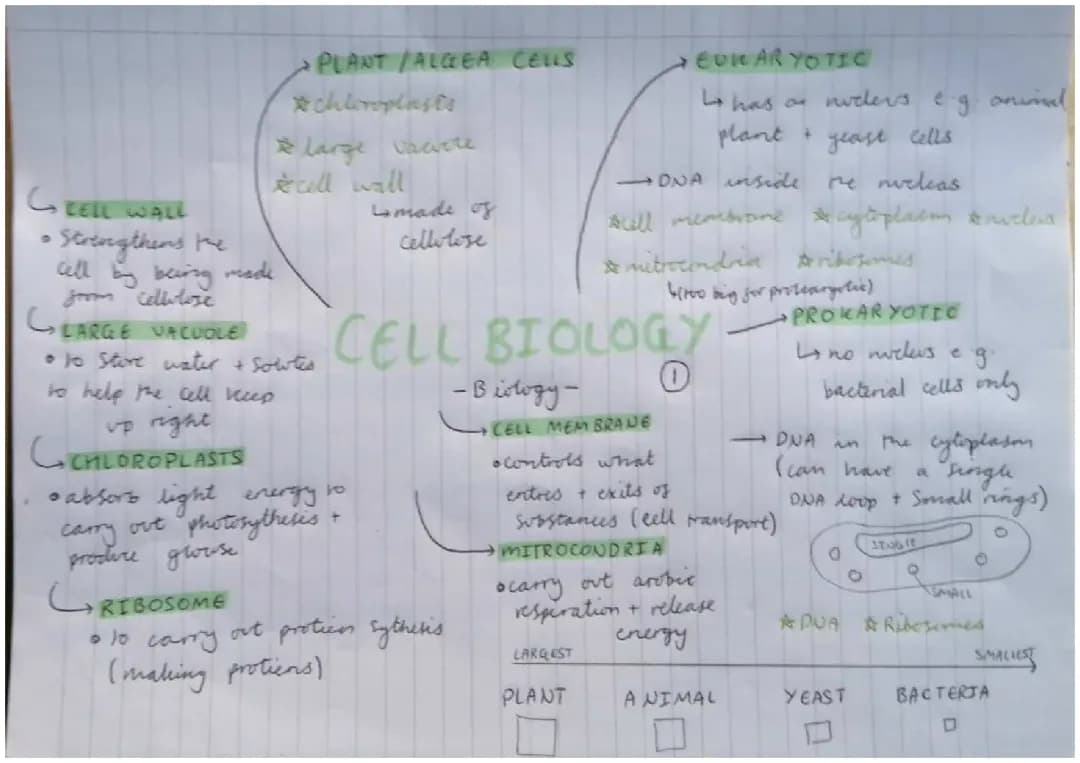 PLANT / ALGEA CELLS
☆ chloroplasts
☆ large vacuole
☆ cell wall
↳ made of
cellulose
EUKARYOTIC
↳ has a nucleus e.g. animal
plant + yeast cells
→ DNA inside the nucleas
☆ cell membrane ☆ cytoplasm ☆ nucleus
☆ mitrocondria ☆ ribosomes
↳ (too big for prokaryotic)
CELL WALL
• Strengthens the
cell by being made
from cellulose
LARGE VACUOLE
• to store water + solutes
to help the cell keep
up right
CHLOROPLASTS
• absorb light energy to
carry out photosythesis +
produce glucose
RIBOSOME
• to carry out protien sythesis
(making protiens)
CELL BIOLOGY
- Biology -
1
CELL MEMBRANE
• controls what
entres + exits of
substances (cell transport)
MITROCONDRIA
• carry out arobic
respiration + release
energy
PROKARYOTIC
↳ no nucleus e.g.
bacterial cells only
→ DNA in the cytoplasm
(can have a single
DNA loop + small rings)
SINGLE
SMALL
☆ DNA ☆ Ribosomes
LARGEST SMALLEST
PLANT ANIMAL YEAST BACTERIA